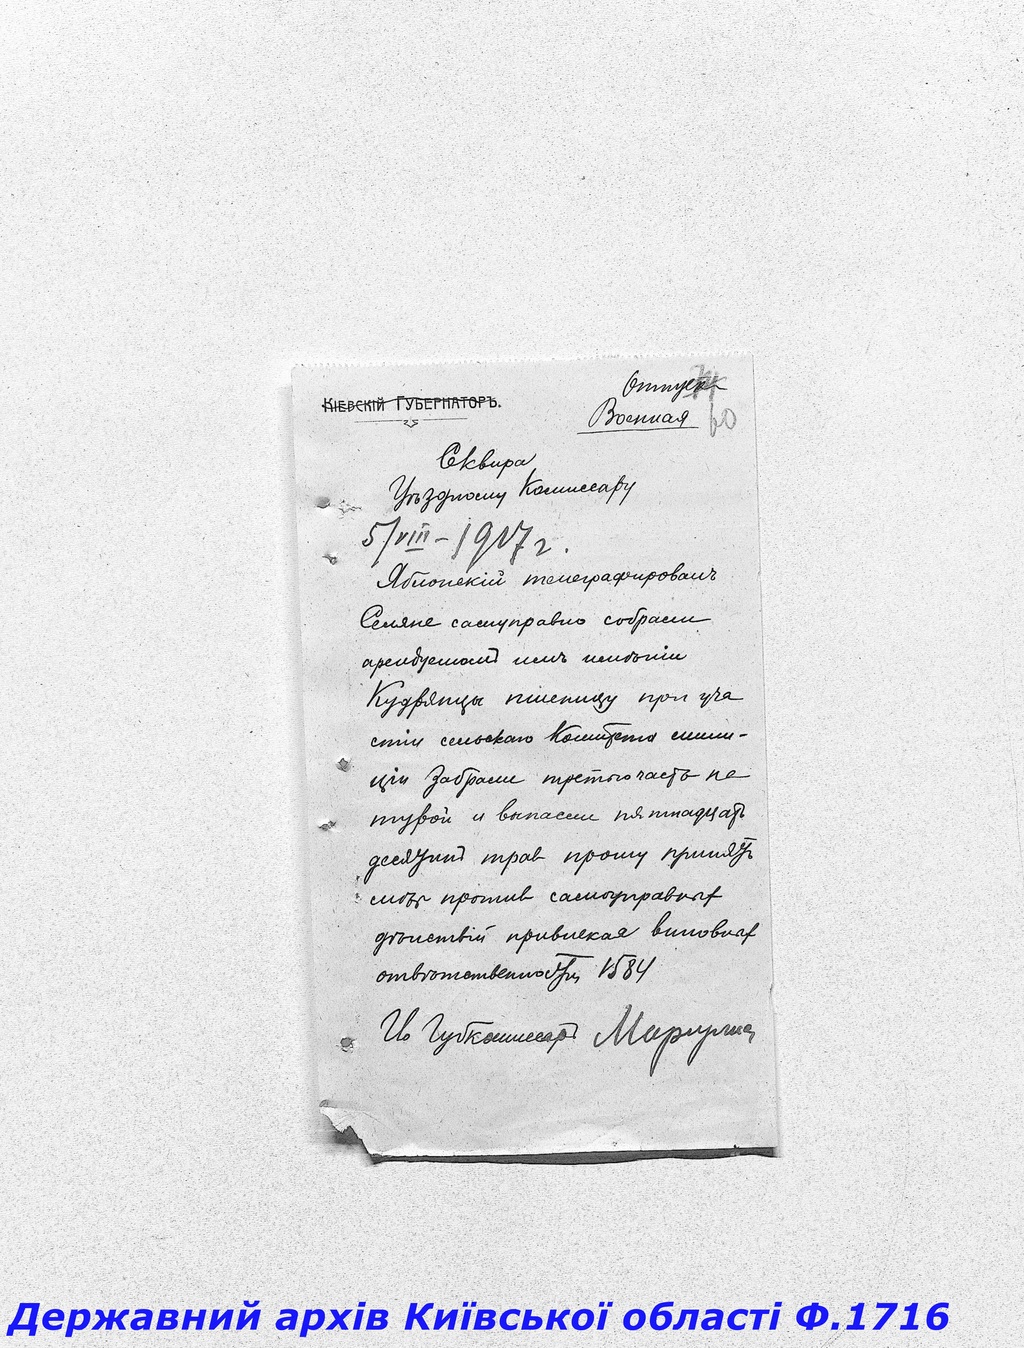 Отпуск
Кіевскій Губернаторъ.
Военная
60
Сквира
Уѣздному Комиссару
5/VIII – 1917 г.
Яблонскій телеграфировалъ
Селяне самуправно собрали
арендуемом имъ имѣніи
Кудрянцы пшеницу при уча
стіи сельскаго Комитета мили-
ціи Забрали третью часть не
тувой и выпасли пятнадцать
десятин трав прошу принять
мѣры против самоуправных
дѣйствій привлекая виновных
отвѣтственности 1584
Ио Губкомиссар
Державний архів Київської області Ф.1716